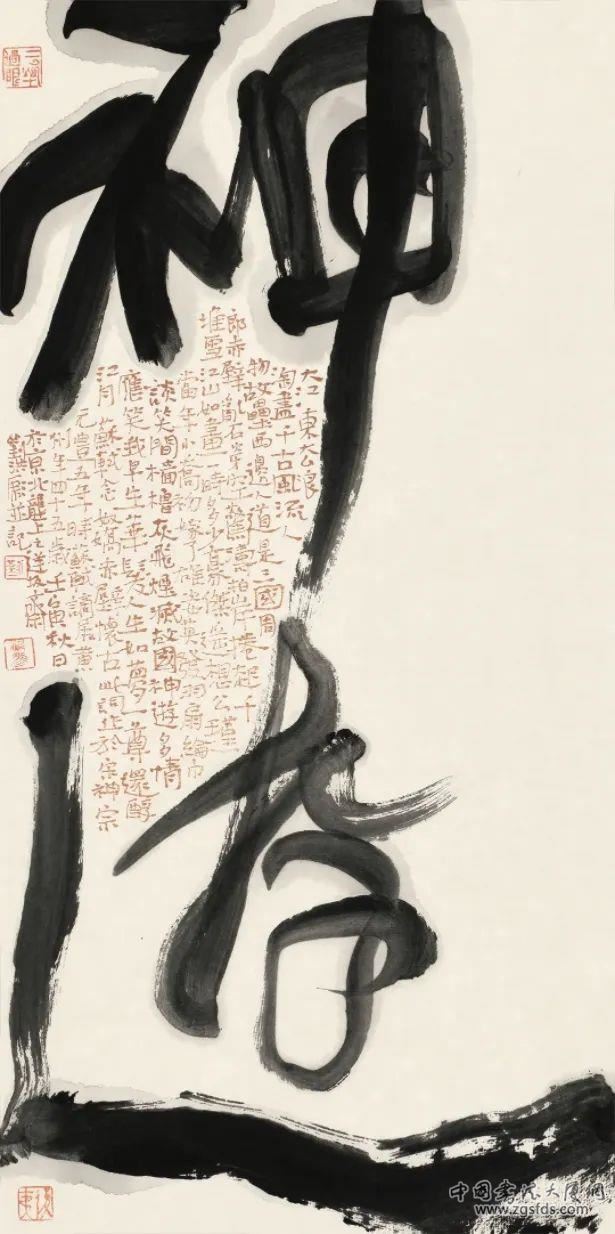 神遊
大江東去浪
淘盡千古風流人
物故壘西邊人道是三國周
郎赤壁亂石穿空驚濤拍岸捲起千
堆雪江山如畫一時多少豪傑遙想公瑾
當年小喬初嫁了雄姿英發羽扇綸巾
談笑間檣櫓灰飛煙滅故國神遊多情
應笑我早生華髮人生如夢一尊還酹
江月蘇軾念奴嬌赤壁懷古此詞作於宋神宗
元豐五年時蘇軾謫居黃
州年四十五歲壬寅秋日
於京北壟上
劉洪彪並記
中国书法大厦网
www.zgsfds.com